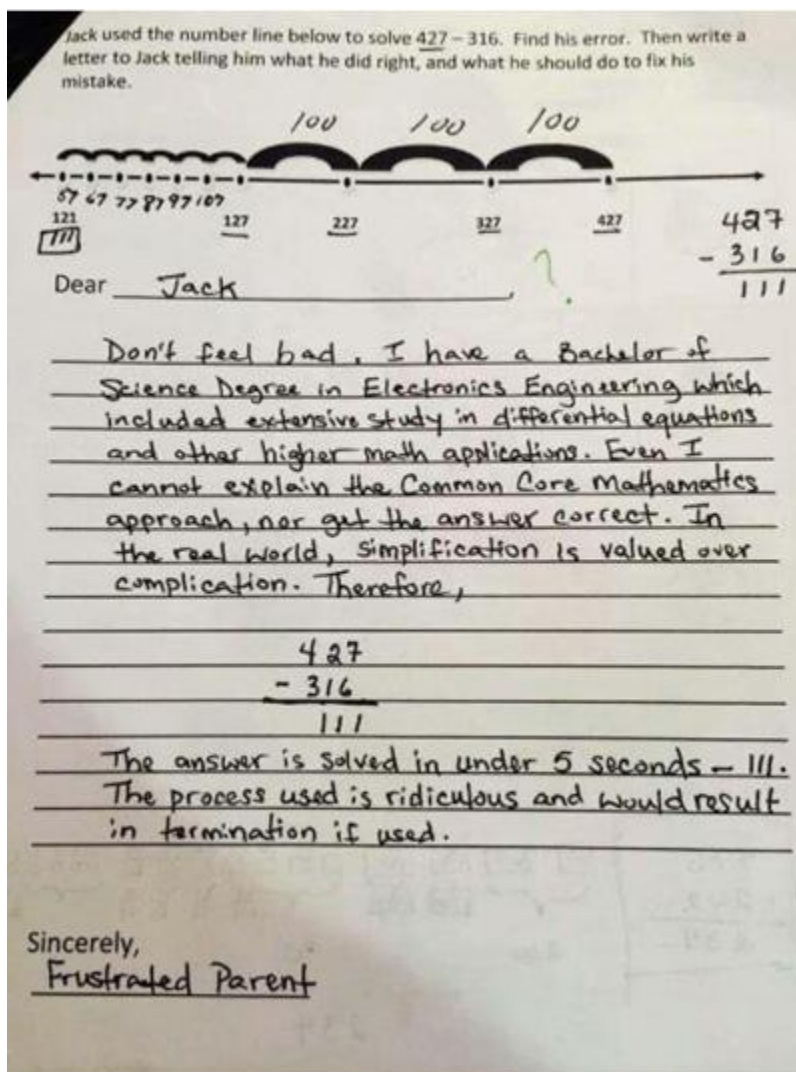 Jack used the number line below to solve 427 – 316. Find his error. Then write a
letter to Jack telling him what he did right, and what he should do to fix his
mistake.
100 100 100
57 67 77 87 97 107
121 127 227 327 427
111
427
- 316
111
Dear Jack,
?
Don't feel bad. I have a Bachelor of
Science Degree in Electronics Engineering which
included extensive study in differential equations
and other higher math applications. Even I
cannot explain the Common Core Mathematics
approach, nor get the answer correct. In
the real world, simplification is valued over
complication. Therefore,
427
- 316
111
The answer is solved in under 5 seconds – 111.
The process used is ridiculous and would result
in termination if used.
Sincerely,
Frustrated Parent